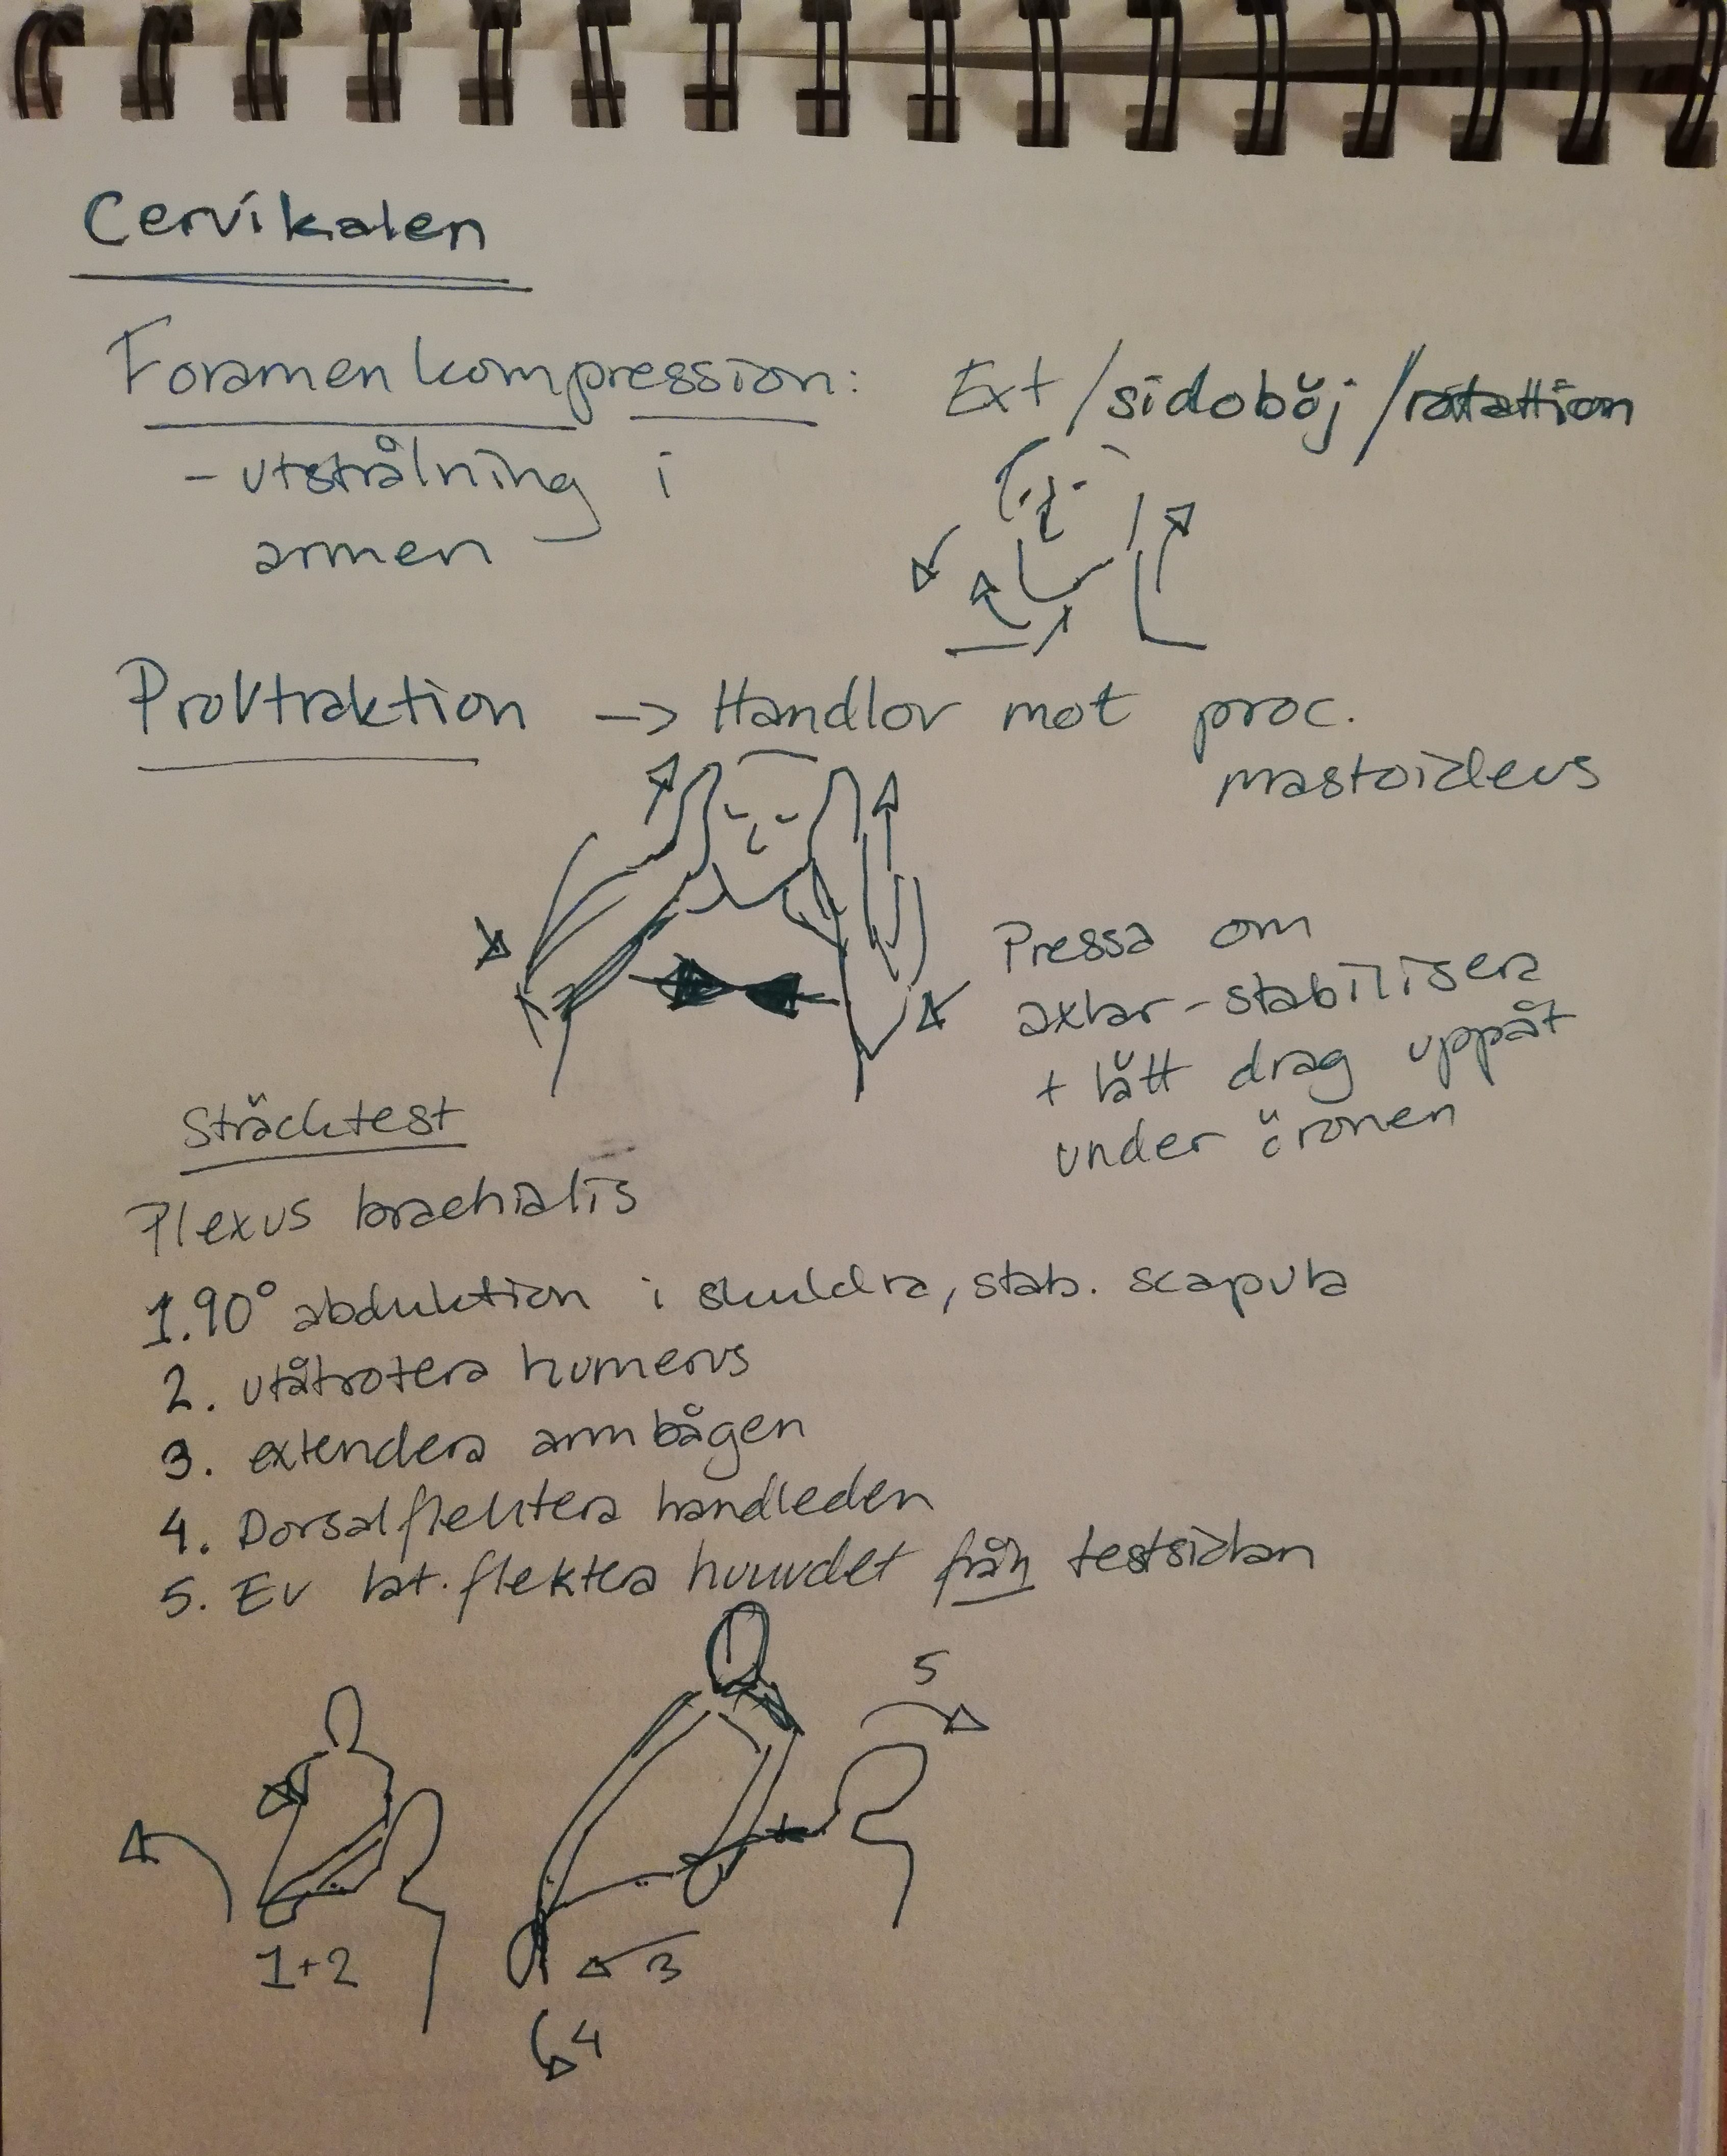 Cervikalen
Foramenkompression: Ext/sidoböj/rotation
- utstrålning i
armen
Provtraktion -> Handlov mot proc.
mastoideus
Pressa om
axlar - stabilisera
+ lätt drag uppåt
under öronen
Sträcktest
Plexus brachialis
1. 90° abduktion i skuldra, stab. scapula
2. utåtrotera humerus
3. extendera armbågen
4. Dorsalflektera handleden
5. Ev lat. flektera huvudet från testsidan
5
1+2
3
4